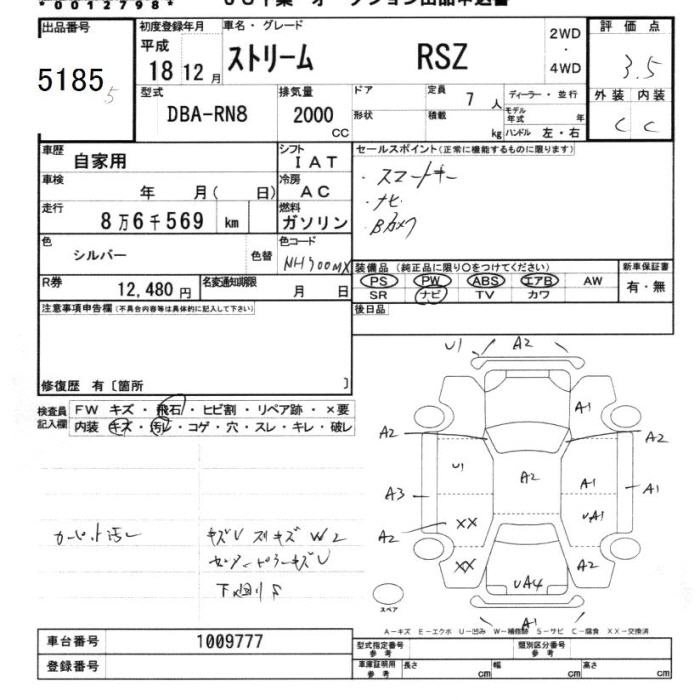 *0012798*
出品番号
5185
5
初度登録年月
平成
18 12 月
車名・グレード
ストリーム RSZ
2WD
・
4WD
評価点
3.5
外装 内装
C C
型式
DBA-RN8
排気量
2000
CC
ドア
形状
定員 7 人
積載 kg
ディーラー・並行
モデル年式 年
ハンドル 左・右
車歴
自家用
シフト
IAT
車検
年 月( 日)
冷房
AC
走行
8万6千569 km
燃料
ガソリン
色
シルバー
色替
色コード
NH700MX
R券
12,480 円
名変通知期限
月 日
セールスポイント(正常に機能するものに限ります)
・スマートキー
・ナビ
・Bカメラ
装備品 (純正品に限り〇をつけてください)
PS PW ABS エアB AW
SR ナビ TV カワ
新車保証書
有・無
後日品
注意事項申告欄(不具合内容等は具体的に記入して下さい)
修復歴 有〔箇所 〕
検査員記入欄
FW キズ・飛石・ヒビ割・リペア跡・×要
内装 キズ・汚レ・コゲ・穴・スレ・キレ・破レ
カーペット汚レ
キズU スリキズ W2
センターピラーキズU
下廻りS
U1 A2
A1
A2 A2
U1 A2 A1
A3 A1
XX UA1
A2
XX A2
UA4
A1
スペア
A−キズ E−エクボ U−凹み W−補修跡 S−サビ C−腐食 XX−交換済
車台番号 1009777
登録番号
型式指定番号
参考
類別区分番号
参考
車庫証明用
参考
長さ cm 幅 cm 高さ cm